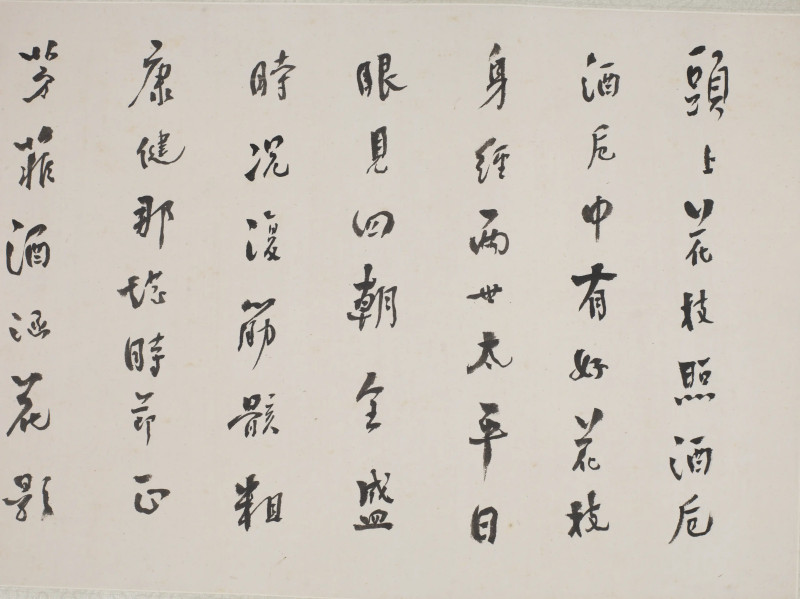 頭上花枝照酒卮
酒卮中有好花枝
身經兩世太平日
眼見四朝全盛
時況復筋骸粗
康健那堪時節正
芳菲酒涵花影